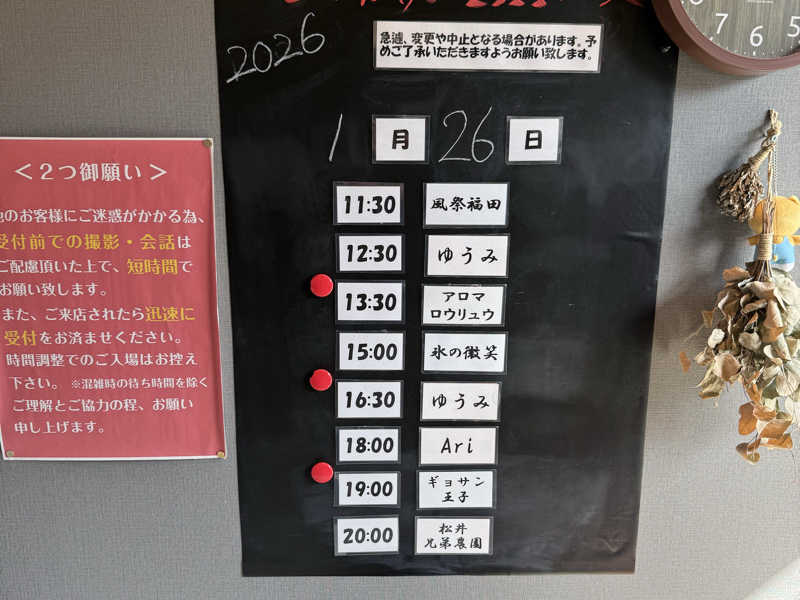 2026
急遽、変更や中止となる場合があります。予
めご了承いただきますようお願い致します。
1 月 26 日
11:30 風祭福田
12:30 ゆうみ
13:30 アロマ
ロウリュウ
15:00 氷の微笑
16:30 ゆうみ
18:00 Ari
19:00 ギョサン
王子
20:00 松井
兄弟農園
＜2つ御願い＞
のお客様にご迷惑がかかる為、
受付前での撮影・会話は
ご配慮頂いた上で、短時間で
お願い致します。
また、ご来店されたら迅速に
受付をお済ませください。
時間調整でのご入場はお控え
下さい。 ※混雑時の待ち時間を除く
ご理解とご協力の程、お願い
申し上げます。
12
1
2
3
4
5
6
7